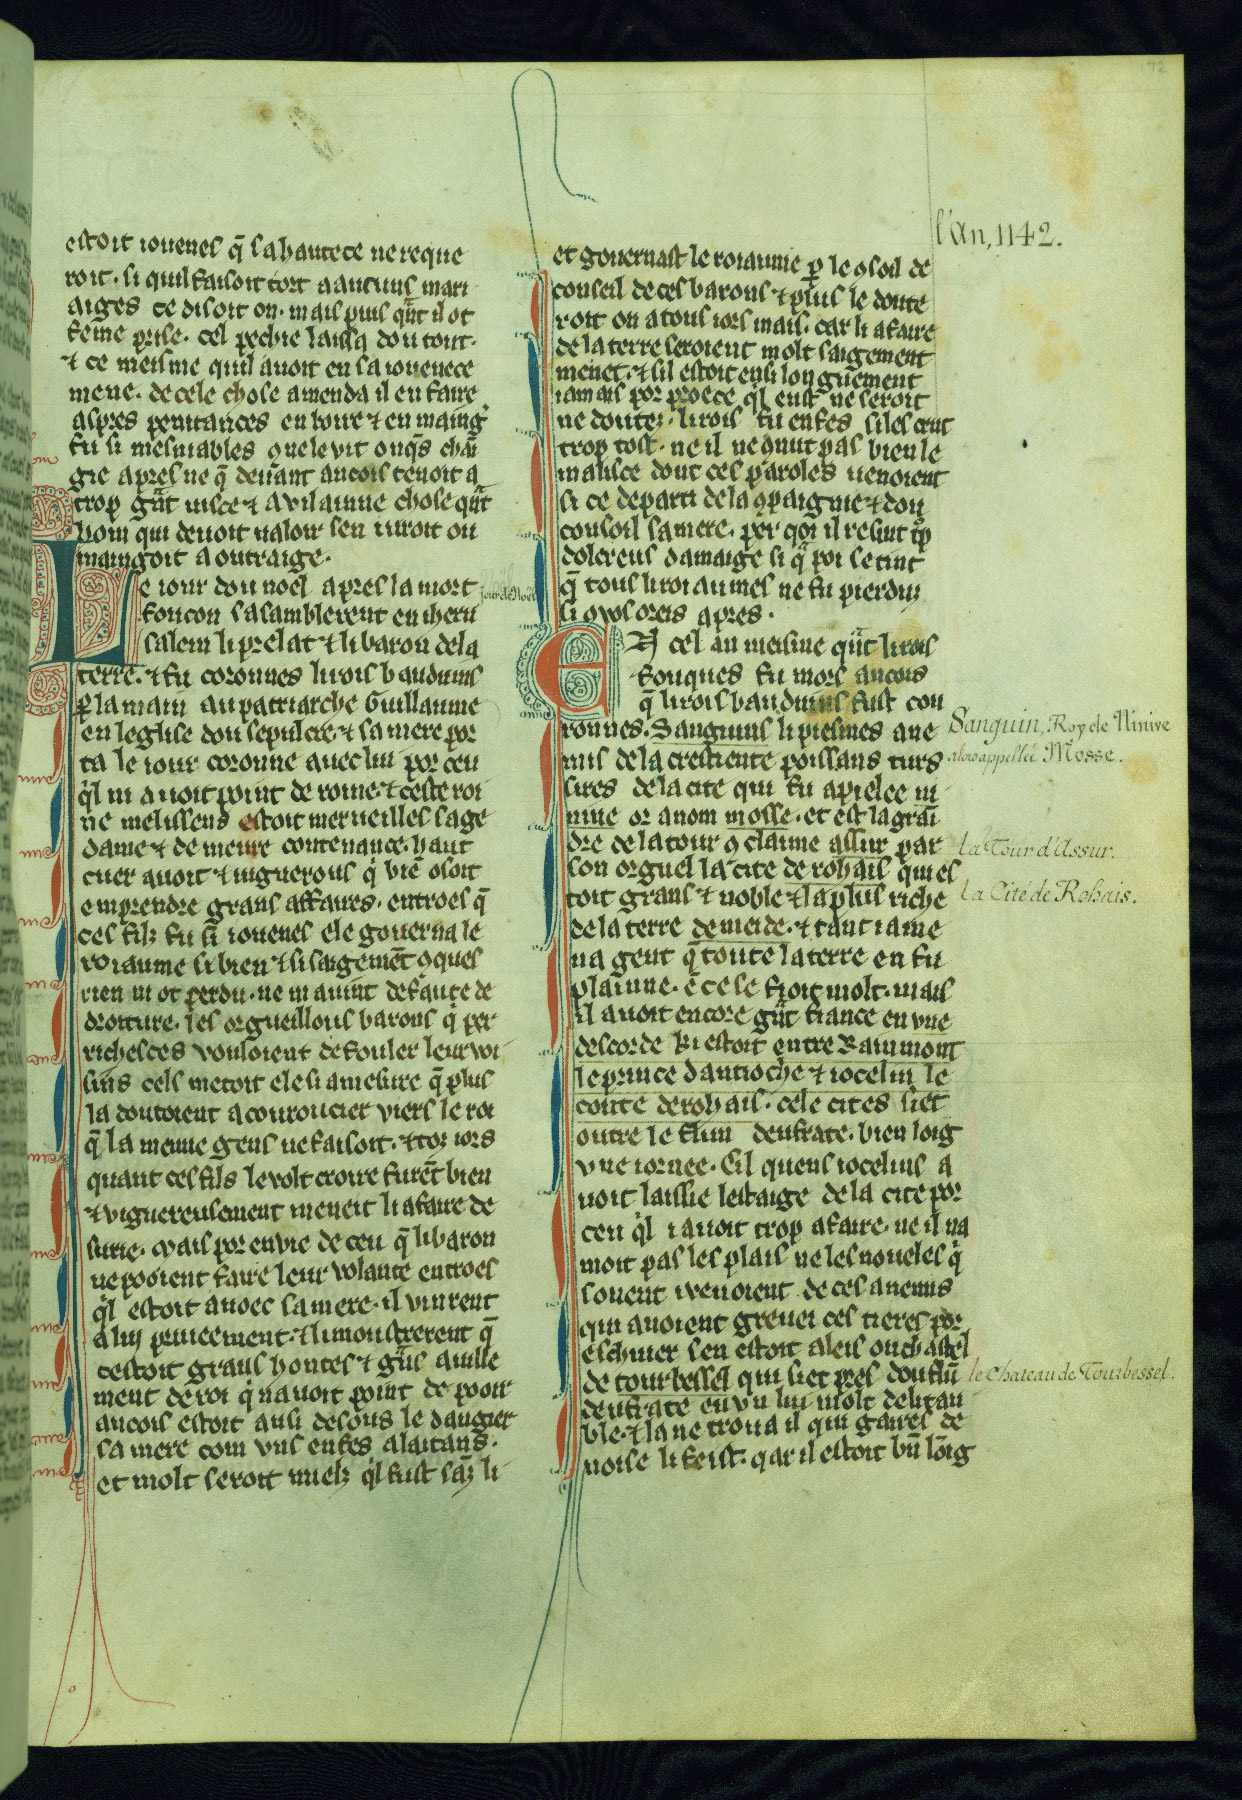 estoit iouenes q̄ sa hautece ne reque
roit. si quil faisoit tort a aucuns mari
aiges ce disoit on. mais puis q̄nt il ot
feme prise. cel pechie laissa dou tout.
⁊ ce meisme quil auoit en sa iouenece
mene. de cele chose amenda il en faire
aspres penitances en boire ⁊ en maing̾
fu si mesurables que le vit onq̄s chāi
gie apres ne q̄ deuant ancois tenoit a
trop gn̄t uisce ⁊ a vilainne chose qn̄t
hom qui deuoit ualoir sen iuroit ou
maingoit a outraige.
Le iour dou noel apres la mort
foucon sasamblerent en iheru
salem li prelat ⁊ li baron de la
terre. ⁊ fu coronnes li rois bauduins
p̄ la main au patriarche Guillaume
en leglise dou sepulcre. ⁊ sa mere por
ta le iour coronne auec lui por ceu
q̍l ni auoit point de roine. ⁊ ceste roi
ne melissens estoit merueilles sage
dame ⁊ de meure contenance. haut
cuer auoit ⁊ uiguerous q̍ biē osoit
emprendre grans affaires. entroes q̄
ces filz fu si iouenes ele gouerna le
roiaume si bien ⁊ si saigemēt oques
rien ni ot perdu. ne ni auint defaute de
droiture. les orgueillous barons q̍ per
richesces vousoient defouler leur voi
sins cels metoit ele si a mesure q̄ plus
la doutoient a couroucier viers le roi
q̄ la menue gens ne faisoit. ⁊ toz iors
quant ces fils le volt croire furēt bien
⁊ viguereusement meneit li afaire de
surie. Mais por envie de ceu q̄ li baron
ne pooient faire leur volante entroes
q̍l estoit auoec sa mere. il vinrent
a lui priueement. ⁊ li monstrerent q̄
cestoit grans hontes ⁊ gn̄s auille
ment de roi q̍ nauoit point de pooir
ancois estoit ausi desous le dangier
sa mere com vns enfes alaitans.
et molt seroit mielz q̍l fust sāz li
jour de Noël
et gouernast le roiaume p̄ le ꝯsoil de
conseil de ces barons ⁊ plus le doute
roit on a tous iors mais. car li afaire
de la terre seroient molt saigement
menet. ⁊ sil estoit ensi longuement
iamais por proece q̍l eust ne seroit
ne doutez. li rois fu enfes si les crut
trop tost. ne il ne ꝯnut pas bien le
malisce dont ces paroles uenoient
si ce departi de la ꝯpaignie ⁊ dou
consoil sa mere. per qoi il resiut tp̄
dolereus damaige si q̄ poi se tint
q̄ tous li roiaumes ne fu pierduz
si ꝯ vos oreis apres.
En cel an meisme qn̄t li rois
fouques fu mors ancois
q̄ li rois bauduins fust cou
ronnes. Sanguins li piesmes ane
mis de la crestiente poissans turs
sires de la cite qui fu apielee ni
niue or a nom mosse. et est la grāi
dre de la tour ꝯ claime assur par
son orguel la cite de rohais qui es
toit grans ⁊ noble ⁊ la plus riche
de la terre de meide. ⁊ tant i ame
na gent q̄ toute la terre en fu
plainne. ē ce se fioit molt. mais
il auoit encore gn̄t fiance en vne
descorde ki estoit entre Raimmont
le prince dantioche ⁊ iocelin le
conte de rohais. cele cites siet
outre le flun deufrate. bien loig
vne iornee. Cil quens iocelins a
uoit laissie lestaige de la cite por
ceu q̍l i auoit trop afaire. ne il na
moit pas les plais ne les noueles q̍
souent i venoient de ces anemis
qui auoient greuei ces tieres por
eschiuer sen estoit aleis ou chastel
de tourbessel qui siet pres dou flū
deufrate en vn liu molt delitau
ble. ⁊ la ne troua il qui gaires de
noise li feist. qar il estoit bn̄ lōig
72
l'An, 1142.
Sanguin, Roy de Ninive
alors appellée Mosse.
La Tour d'Assur.
La Cité de Rohais.
le Chateau de Tourbessel.